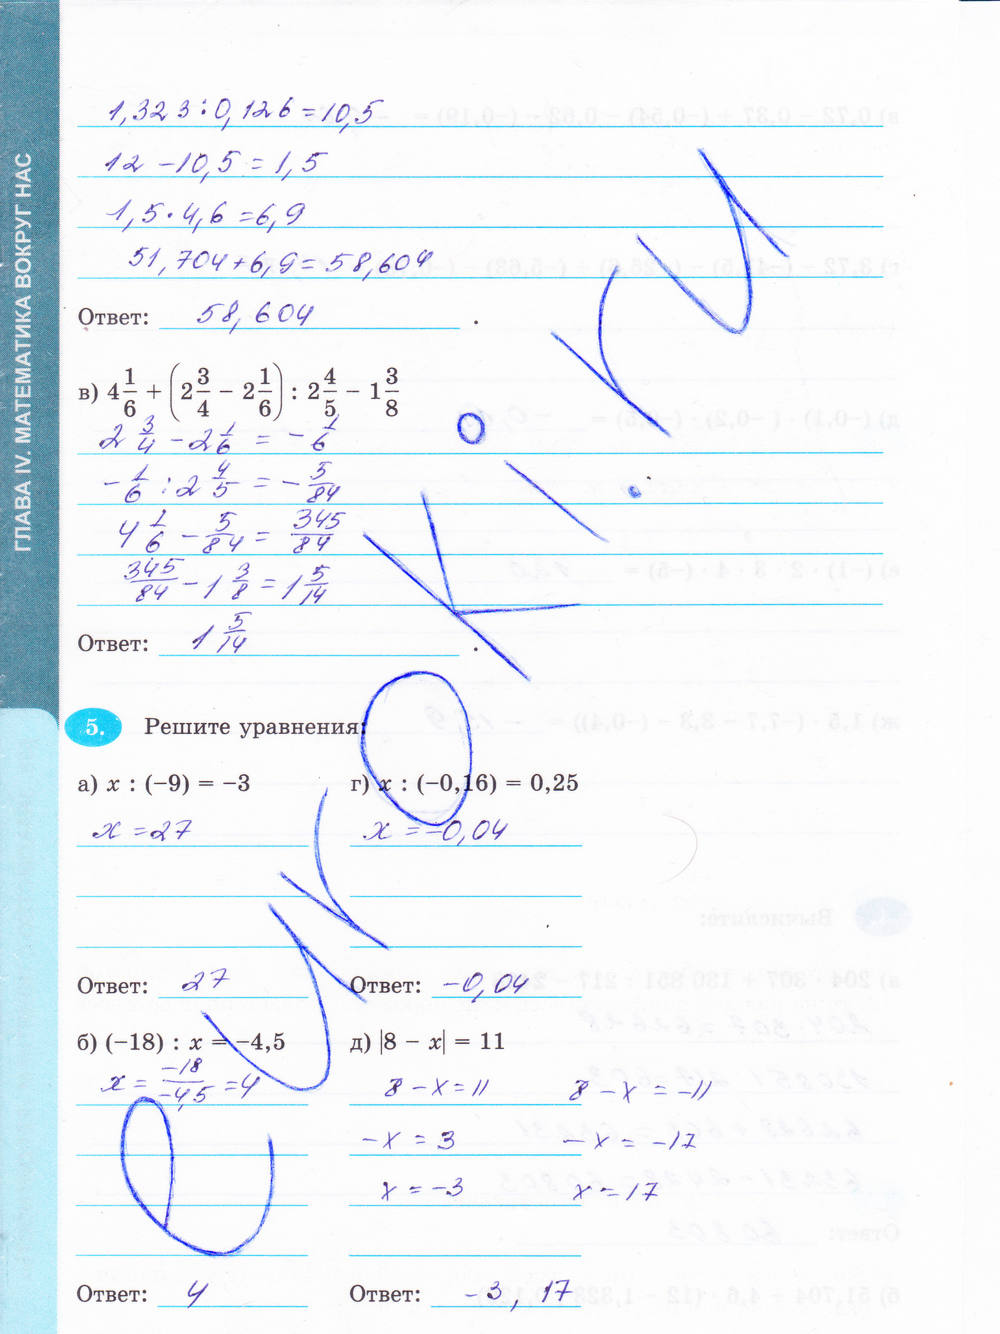 ГЛАВА IV. МАТЕМАТИКА ВОКРУГ НАС
1,323 : 0,126 = 10,5
12 - 10,5 = 1,5
1,5 · 4,6 = 6,9
51,704 + 6,9 = 58,604
Ответ: 58,604 .
в) 4 1/6 + (2 3/4 − 2 1/6) : 2 4/5 − 1 3/8
2 3/4 - 2 1/6 = - 1/6
- 1/6 : 2 4/5 = - 5/84
4 1/6 - 5/84 = 345/84
345/84 - 1 3/8 = 1 5/14
Ответ: 1 5/14 .
5. Решите уравнения:
а) x : (−9) = −3
x = 27
Ответ: 27
г) x : (−0,16) = 0,25
x = -0,04
Ответ: -0,04
б) (−18) : x = −4,5
x = -18/-4,5 = 4
Ответ: 4
д) |8 − x| = 11
8 - x = 11 8 - x = -11
-x = 3 -x = -17
x = -3 x = 17
Ответ: -3, 17
eurokI.ru